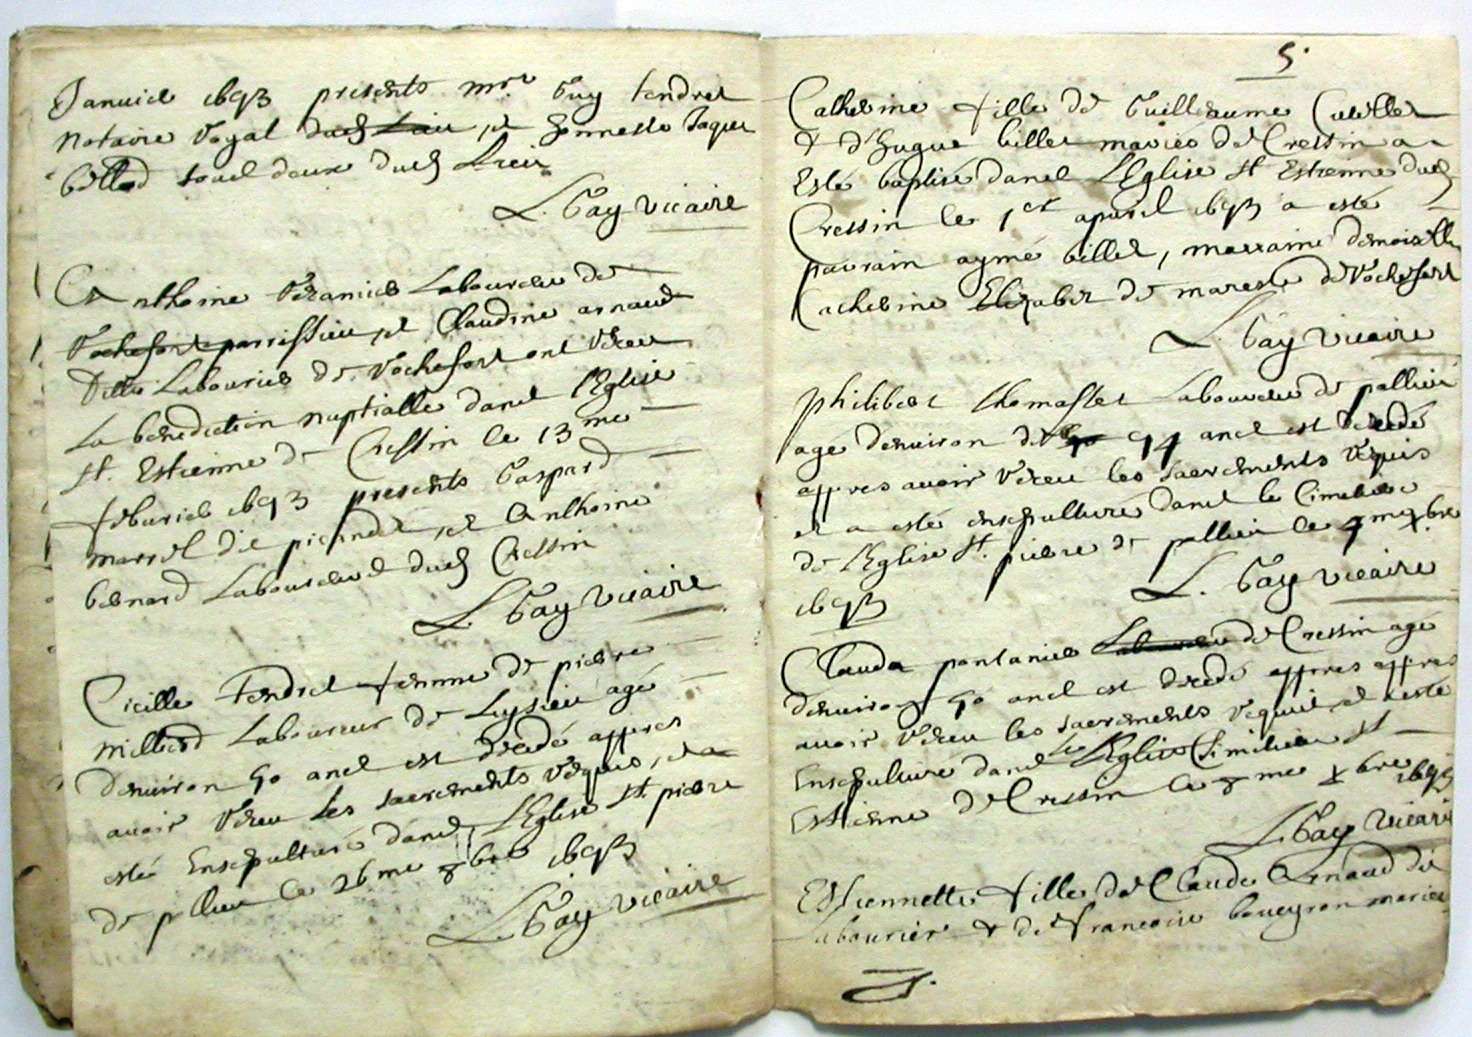 Januier 1693 presents mr. Guy tendret
Notaire Royal dud Lieu, et honneste Jaques
billod tous deux dud Lieu
L. Gay vicaire
Anthoine Laboureur de
Rochefort parrissien, et Claudine arnaud
Ditte Labourier de Rochefort ont Receu
La benediction nuptialle dans l'Eglise
st. Estienne de Cressin le 13 me
feburier 1693 presents Gaspard
dit pierinet, et Anthoine
bernard Laboureurs dud Cressin
L. Gay Vicaire
Cicille Tendret femme de pierre
milliend Laboureur de Luysieu agé
denuiron 50 ans est decedé appres
auoir Receu Les sacrements Requis, et a
esté Ensepulturé dans l'Eglise st. pierre
de pollieu le 26 me 8bre 1693
L. Gay vicaire
5.
Catherine fille de Guilleaume Cutillet
& d'hugue billet mariés de Cressin a
Esté baptisé dans l'Eglise st Estienne dud
Cressin le 1er apuril 1693 a esté
parrain aymé billet, marraine demoiselle
Catherine Elizabet de mareste de Rochefort
L. Gay Vicaire
philibert thomasset Laboureur de pollieu
age denuiron de 94 ans est decedé
appres auoir Receu les sacrements Requis
et a esté ensepulturé dans le Cimetiere
de l'Eglise st. pierre de pollieu le
1693
L. Gay vicaire
Clauda pontanier Laboureur de Cressin agé
denuiron 50 ans est decedé appres appres
auoir Receu les sacrements Requis et a esté
Ensepulturé dans Le l'Eglise Cimitiere st
Estienne de Cressin le 8 me Xbre 1693
L Gay Vicaire
Estiennette fille de Claude Arnaud dit
Labourier & de francoise boueyron mariés